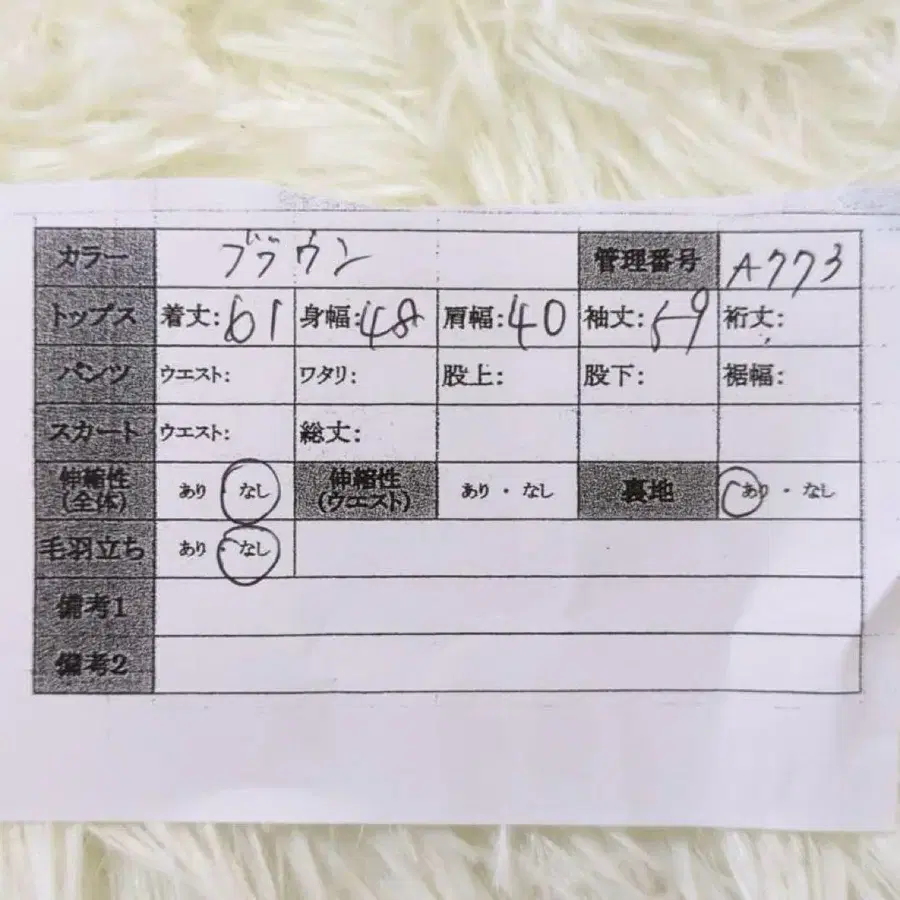 カラー ブラウン 管理番号 A773
トップス 着丈:61 身幅:48 肩幅:40 袖丈:59 裄丈:
パンツ ウエスト: ワタリ: 股上: 股下: 裾幅:
スカート ウエスト: 総丈:
伸縮性(全体) あり・なし 伸縮性(ウエスト) あり・なし 裏地 あり・なし
毛羽立ち あり・なし
備考1
備考2